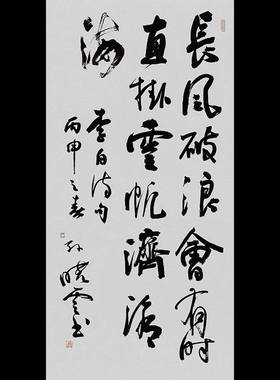 長風破浪會有時
直掛雲帆濟滄
海
李白诗句
丙申之春
孙晓云书